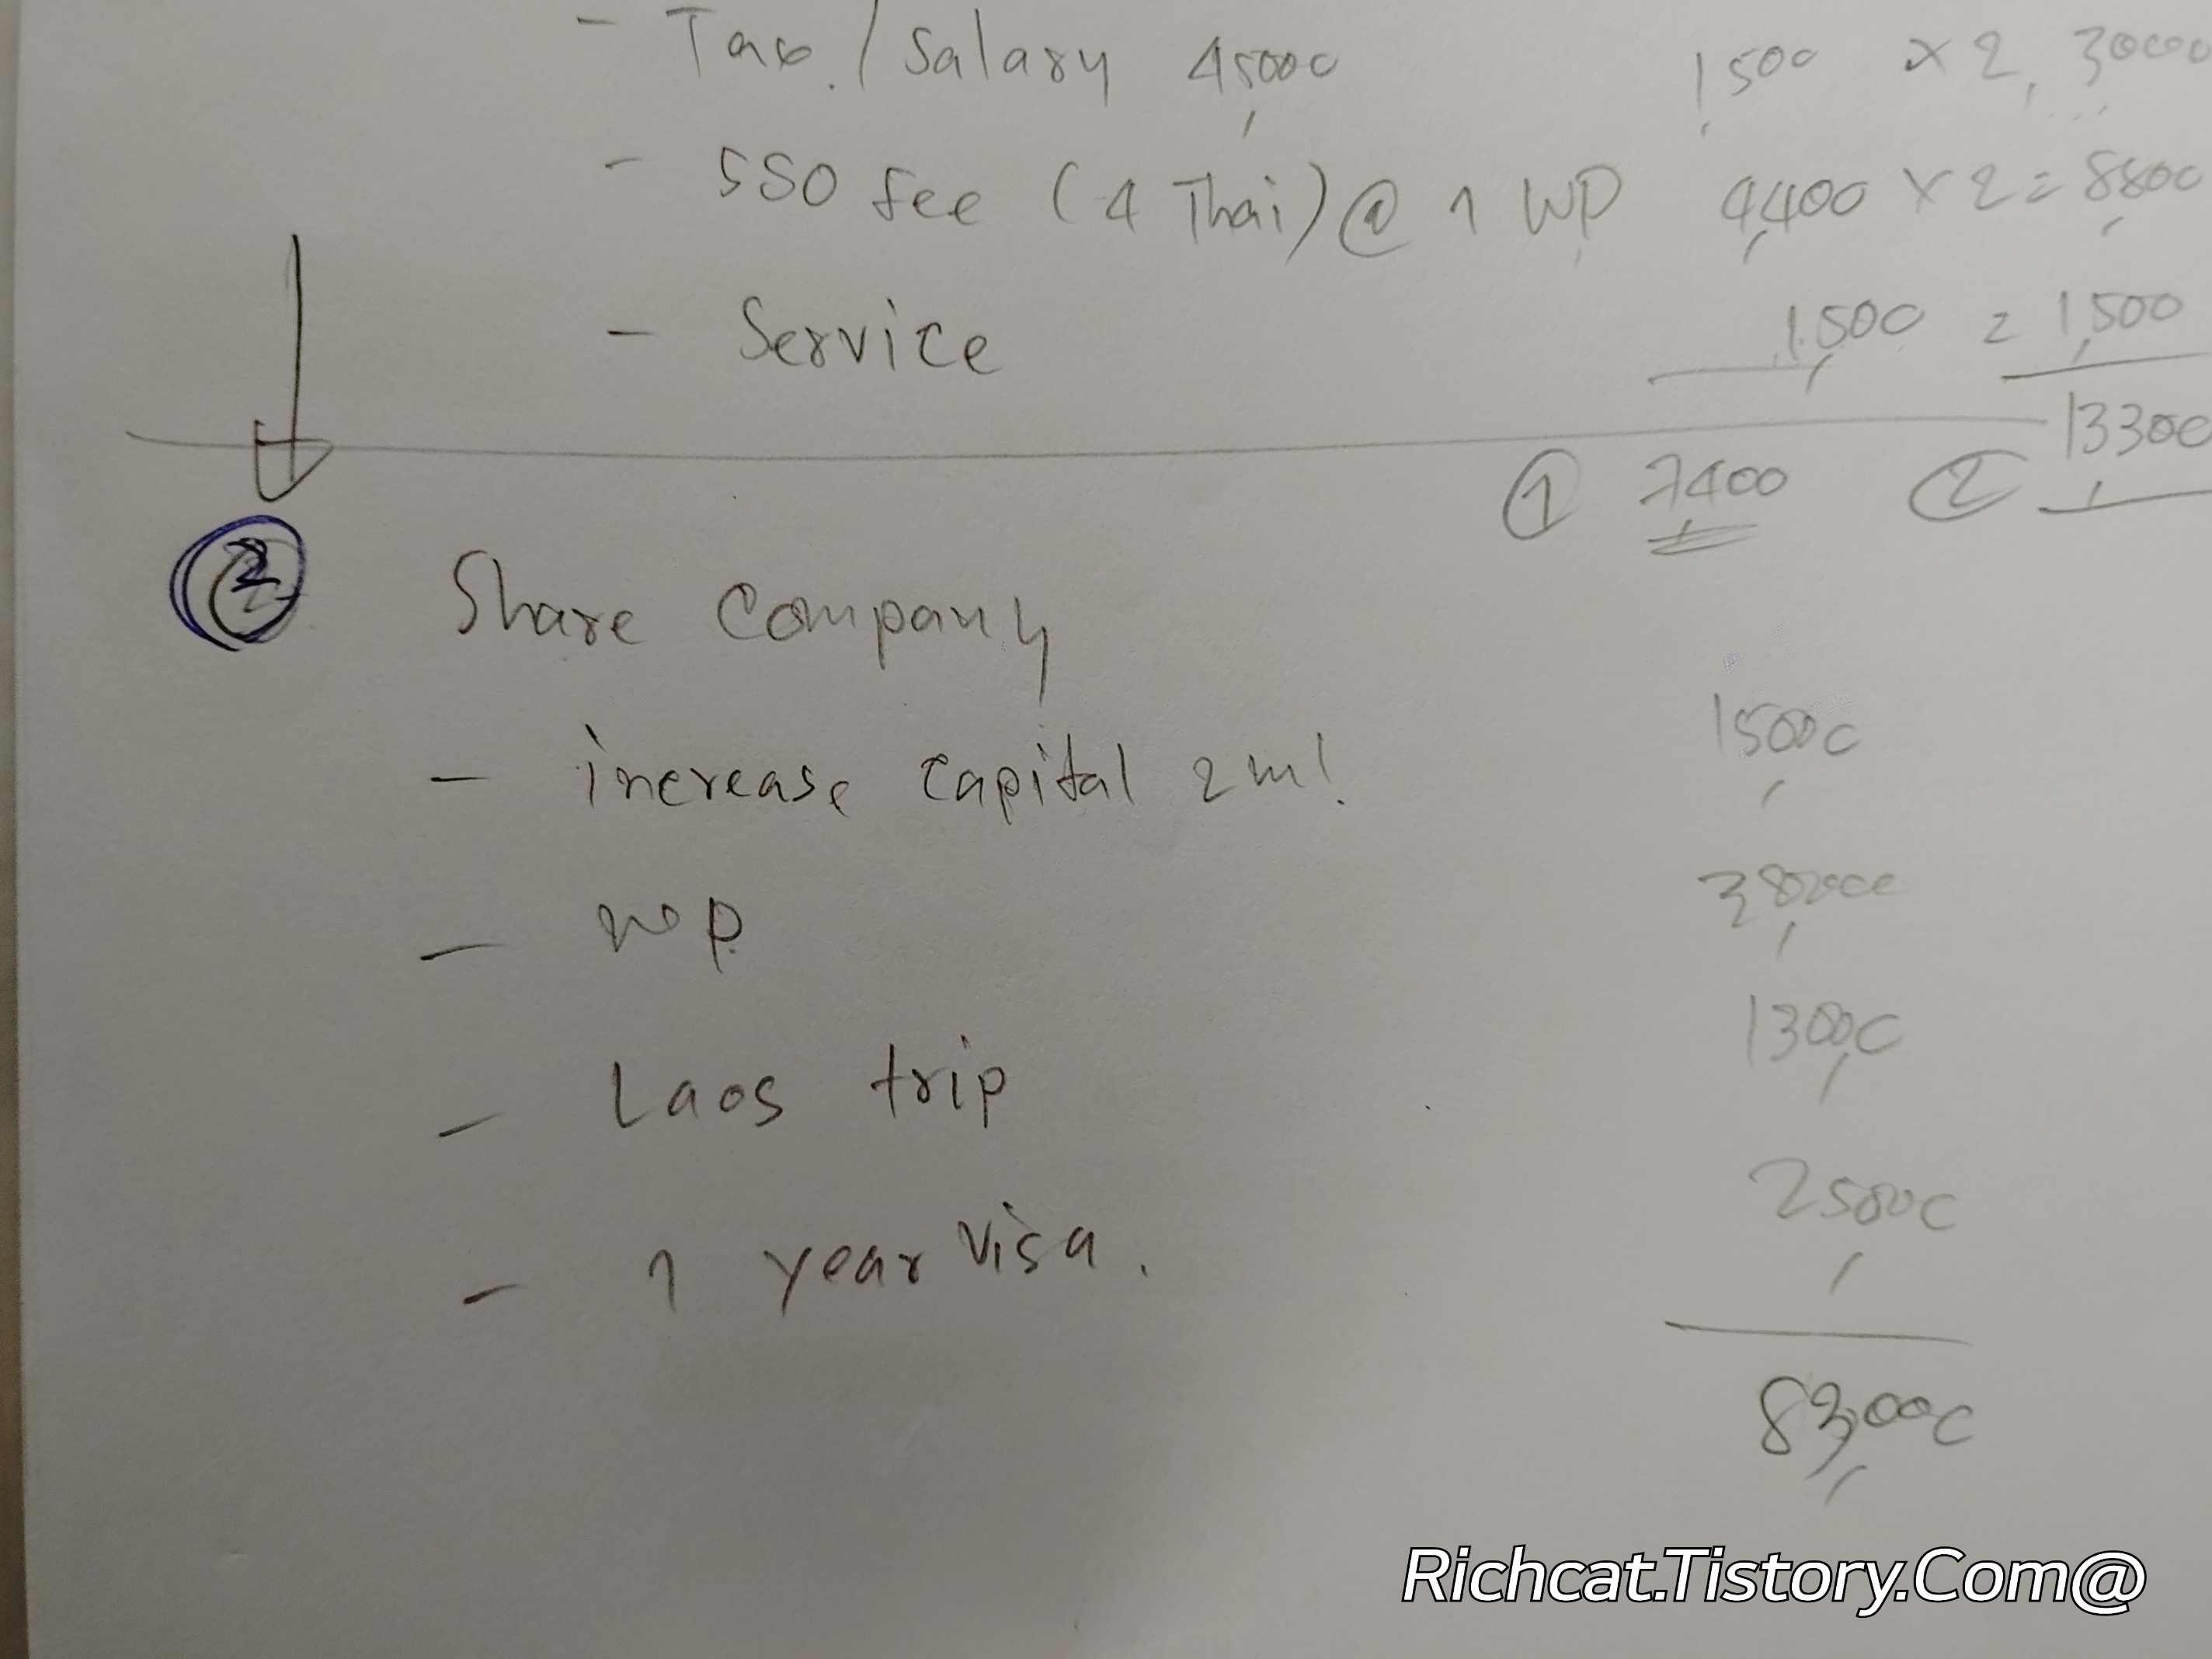 - Tax. / Salary 45,000 1,500 x 2, 3000
- SSO fee (4 Thai) @ 1 WP 4,400 x 2 = 8,800
- Service 1,500 = 1,500
13,300
① 7,400 ②
② Share Company
- increase capital 2 ml. 15,000
- WP. 30,000
- Laos trip 13,000
- 1 year visa. 25,000
83,000
Richcat.Tistory.Com@